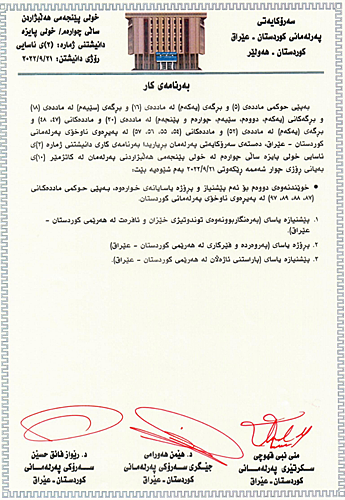 سەرۆکایەتی
پەرلەمانی کوردستان - عێراق
کوردستان - هەولێر
خولی پێنجەمی هەڵبژاردن
ساڵی چوارەم/ خولی پایزە
دانیشتنی ژمارە: (٢)ی ئاسایی
ڕۆژی دانیشتن: ٢٠٢٢/٩/٢١
بەرنامەی کار
بەپێی حوکمی ماددەی (٥) و بڕگەی (یەکەم) لە ماددەی (١٦) و بڕگەی (سێیەم) لە ماددەی (١٨)
و بڕگەکانی (یەکەم، دووەم، سێیەم، چوارەم و پێنجەم) لە ماددەی (٢٠) و ماددەکانی (٤٧، ٤٨) و
بڕگەی (یەکەم) لە ماددەی (٥٢) و ماددەکانی (٥٤، ٥٥، ٥١، ٥٧) لە پەیڕەوی ناوخۆی پەرلەمانی
کوردستان - عێراق، دەستەی سەرۆکایەتی پەرلەمان بڕیاریدا بەرنامەی کاری دانیشتنی ژمارە (٢)ی
ئاسایی خولی پایزی ساڵی چوارەم لە خولی پێنجەمی هەڵبژاردنی پەرلەمان لە کاتژمێر (١٠)ی
بەیانی ڕۆژی چوار شەممە ڕێکەوتی ٢٠٢٢/٩/٢١ بەم شێوەیە بێت:
● خوێندنەوەی دووەم بۆ ئەم پێشنیاز و پڕۆژە یاسایانەی خوارەوە، بەپێی حوکمی ماددەکانی
(٨٧، ٨٨، ٨٩، ٩٧) لە پەیڕەوی ناوخۆی پەرلەمانی کوردستان.
١. پێشنیازە یاسای (بەرەنگاربوونەوەی توندوتیژی خێزان و ئافرەت لە هەرێمی کوردستان -
عێراق).
٢. پڕۆژە یاسای (پەروەردە و فێرکاری لە هەرێمی کوردستان - عێراق).
٣. پێشنیازە یاسای (پاراستنی ئاژەڵان لە هەرێمی کوردستان - عێراق).
منی نبی قهوچی
سکرتێری پەرلەمانی
کوردستان - عێراق
د. هێمن هەورامی
جێگری سەرۆکی پەرلەمانی
کوردستان - عێراق
د. ڕێواز فائق حسێن
سەرۆکی پەرلەمانی
کوردستان - عێراق